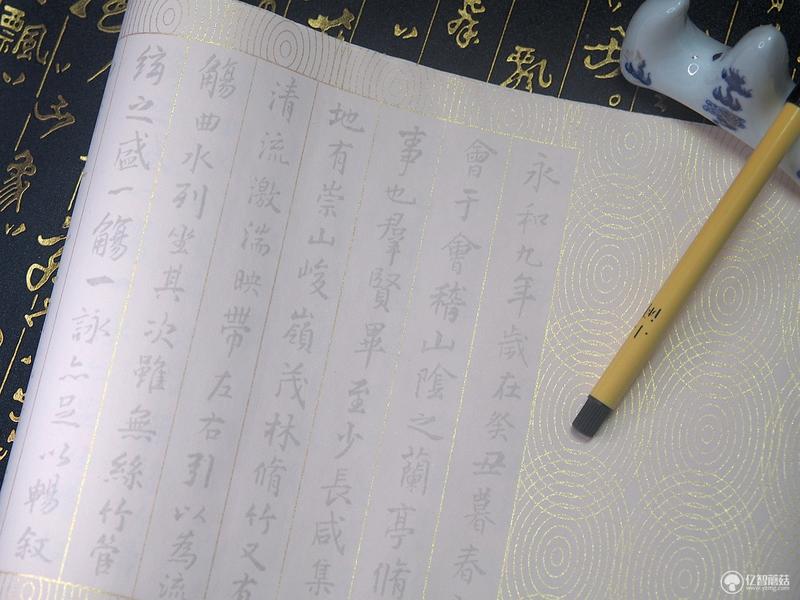 永和九年歲在癸丑暮春
會于會稽山陰之蘭亭脩
事也羣賢畢至少長咸集
地有崇山峻嶺茂林脩竹又有
清流激湍映帶左右引以為流
觴曲水列坐其次雖無絲竹管
絃之盛一觴一詠亦足以暢敘
飄
飄
亿智蘑菇
www.yzmg.com